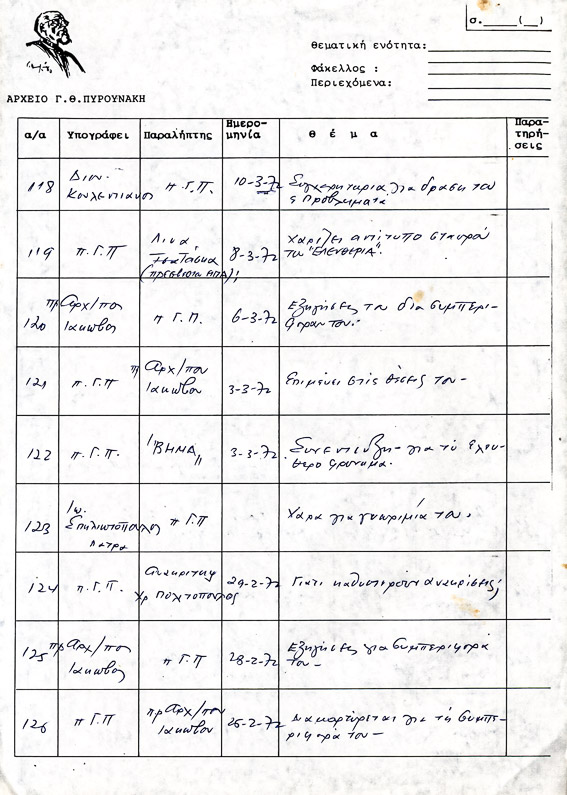 σ.____(__)
θεματική ενότητα:
Φάκελλος :
Περιεχόμενα:
ΑΡΧΕΙΟ Γ.Θ.ΠΥΡΟΥΝΑΚΗ
α/α Υπογράφει Παραλήπτης Ημερο-μηνία θ έ μ α Παρα-τηρή-σεις
118 Διον. π Γ.Π. 10-3-72 Συγχαρητήρια για δραση του
ς Προβλήματα
119 π.Γ.Π Λινα 8-3-72 Χαρίζει αντίτυπο σταυρού
(πρεσβεία ΗΠΑ) του "ΕΛΕΥΘΕΡΙΑ".
120 πρ Αρχ/που Ιακωβος π Γ.Π. 6-3-72 Εξηγήσεις του δια συμπερι-
φοράν του.
121 π.Γ.Π πρ Αρχ/που Ιακωβον 3-3-72 Επιμένει στίς θέσεις του-
122 π.Γ.Π. "ΒΗΜΑ" 3-3-72 Συνεντευξη- για τό ελευ-
θερο φρονημα.
123 Ιω. Σπηλιωτοπουλος π Γ.Π Χαρα για γνωριμία του.
Πατρα
124 π.Γ.Π. Ανακριτην 29-2-72 Γιατι καθυστερούν ανακρίσεις;
125 πρ Αρχ/που Ιακωβος π Γ.Π 28-2-72 Εξηγήσεις για συμπεριφορά
του-
126 π Γ.Π πρ Αρχ/που Ιακωβον 25-2-72 Διαμαρτύρεται για τή συμπε-
ριφορά του-